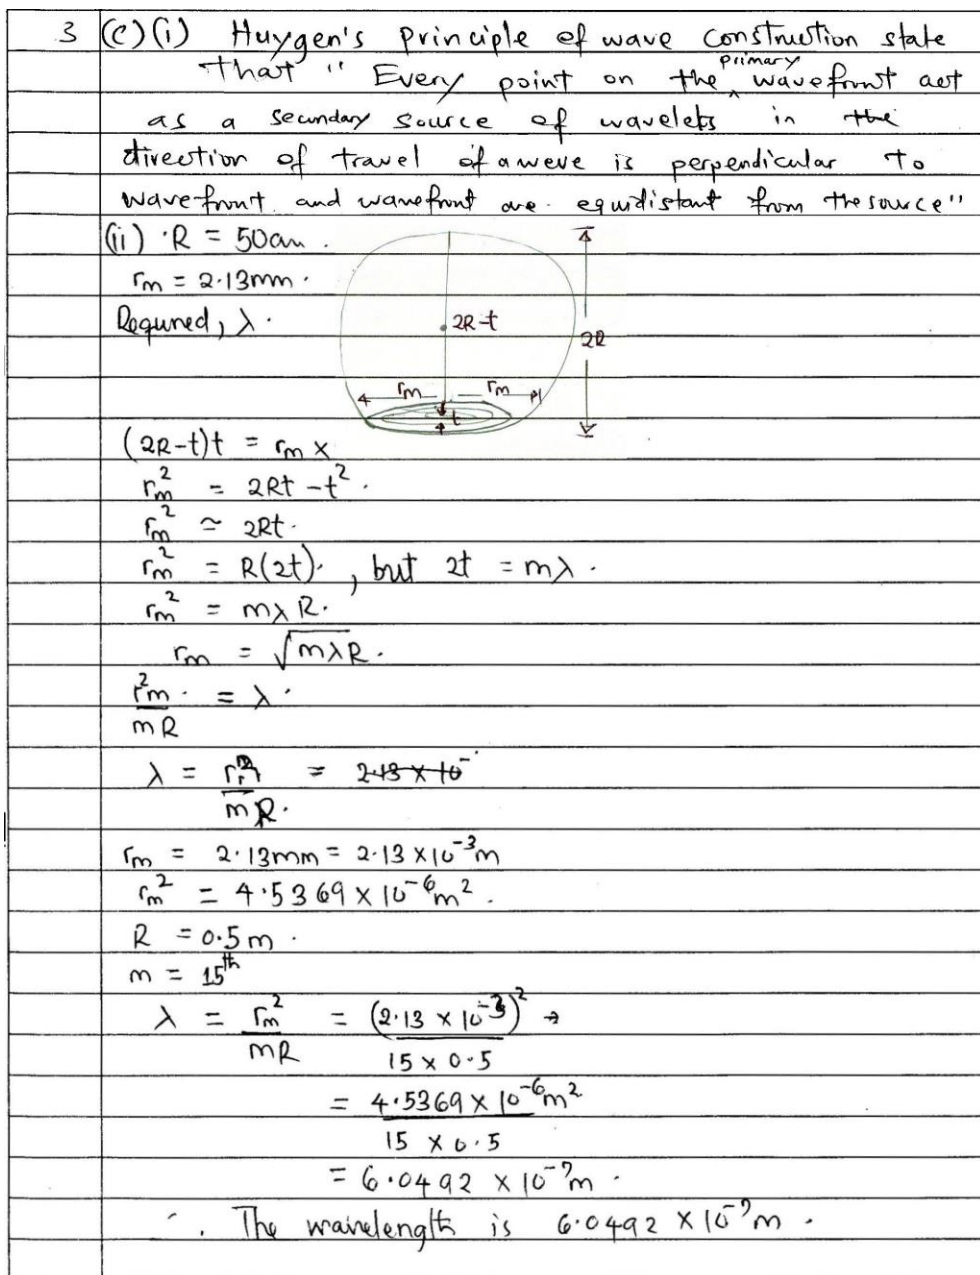 3 (c)(i) Huygen's principle of wave construction state
that " Every point on the primary wavefront act
as a secundary source of wavelets in the
direction of travel of a weve is perpendicular to
wave-front. and wanefront are. equidistant from the source"
(ii) R = 50cm.
rm = 2.13mm.
Required, λ.
2R-t
2R
rm rm
t
(2R-t)t = rm x
rm² = 2Rt - t².
rm² ≃ 2Rt.
rm² = R(2t). , but 2t = mλ.
rm² = mλR.
rm = √mλR.
r²m. / mR = λ.
λ = rm² / mR. = 2.13 × 10⁻
rm = 2.13mm = 2.13 × 10⁻³m
rm² = 4.5369 × 10⁻⁶m².
R = 0.5m.
m = 15th
λ = rm² / mR = (2.13 × 10⁻³)² / 15 × 0.5 →
= 4.5369 × 10⁻⁶m² / 15 × 0.5
= 6.0492 × 10⁻⁷m.
∴ The wavelength is 6.0492 × 10⁻⁷m.